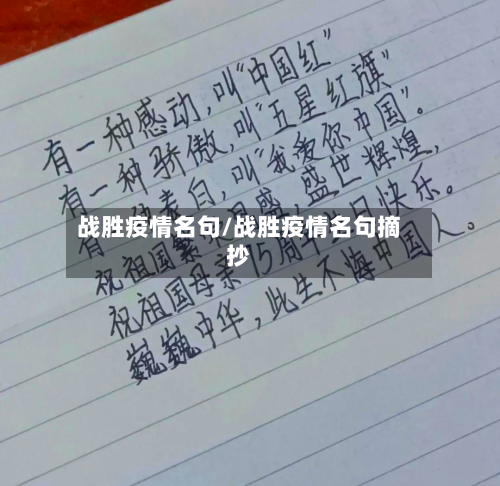 有一种感动,叫“中国红”
有一种骄傲,叫“五星红旗”
有一种表白,叫“我爱你中国”。
祝祖国繁荣昌盛,盛世辉煌,
祝祖国母亲 15周 日快乐。
巍巍中华,此生不悔中国人。
战胜疫情名句/战胜疫情名句摘
抄